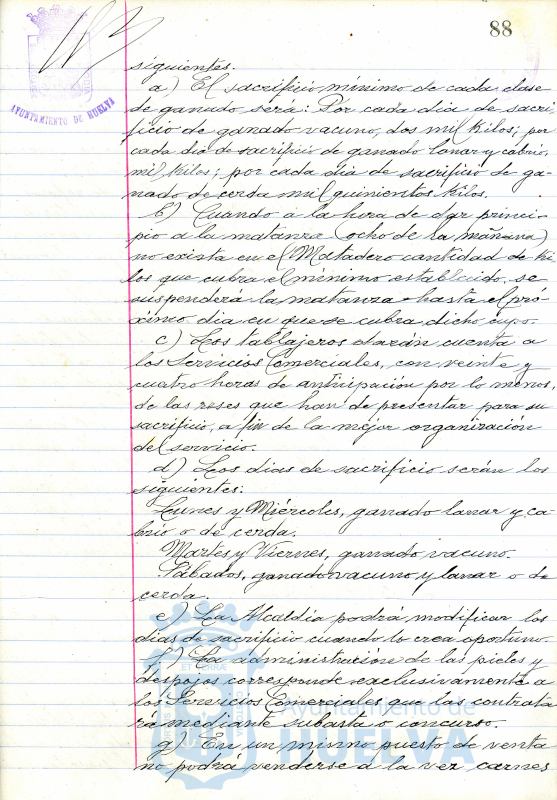 88
AYUNTAMIENTO DE HUELVA
siguientes.
a) El sacrificio mínimo de cada clase
de ganado será: Por cada dia de sacri-
ficio de ganado vacuno, dos mil kilos; por
cada dia de sacrificio de ganado lanar y cabrio,
mil kilos; por cada dia de sacrificio de ga-
nado de cerda mil quinientos kilos.
b) Cuando a la hora de dar princi-
pio a la matanza (ocho de la mañana)
no exista en el Matadero cantidad de ki-
los que cubra el mínimo establecido, se
suspenderá la matanza hasta el pró-
ximo dia en que se cubra dicho cupo.
c) Los tablajeros darán cuenta a
los Servicios Comerciales, con veinte y
cuatro horas de anticipación por lo menos,
de las reses que han de presentar para su
sacrificio, a fin de la mejor organización
del servicio.
d) Los dias de sacrificio serán los
siguientes:
Lunes y Miércoles, ganado lanar y ca-
brio o de cerda.
Martes y Viernes, ganado vacuno.
Sábados, ganado vacuno y lanar o de
cerda.
e) La Alcaldía podrá modificar los
dias de sacrificio cuando lo crea oportuno.
f) La administración de las pieles y
despojos corresponde exclusivamente a
los Servicios Comerciales que los contrata-
rá mediante subasta o concurso.
g) En un mismo puesto de venta
no podrá venderse a la vez carnes
Ayuntamiento de
HUELVA